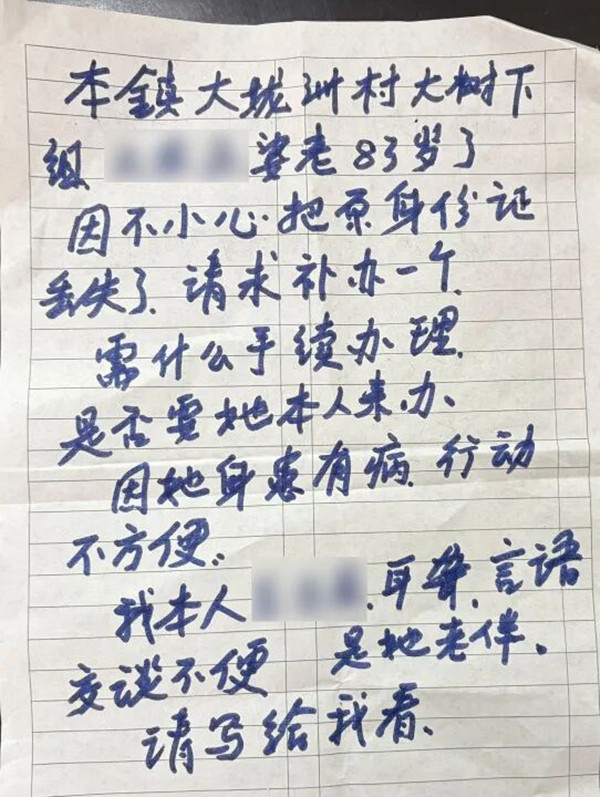 本鎮大垅洲村大树下
组 婆老83岁了
因不小心把原身份证
丢失了.请求补办一个.
需什么手续办理.
是否要她本人来办、
因她身患有病.行动
不方便.
我本人 .耳聋.言语
交谈不便 是她老伴.
请写给我看.